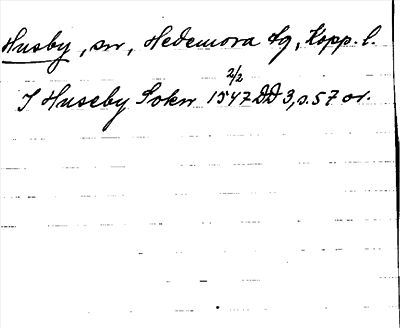 Husby, sn, Hedemora tg, Kopp. l.
I Huseby Sokn 1547 2/2 DD 3, s. 57 or.